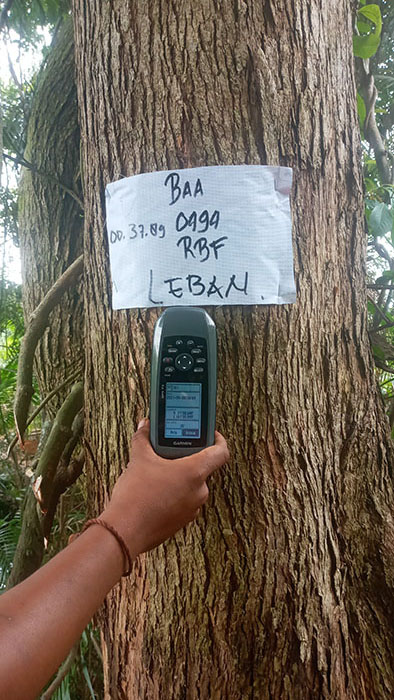 BAA
00.37.89 0494
RBF
LEBAN.
GARMIN